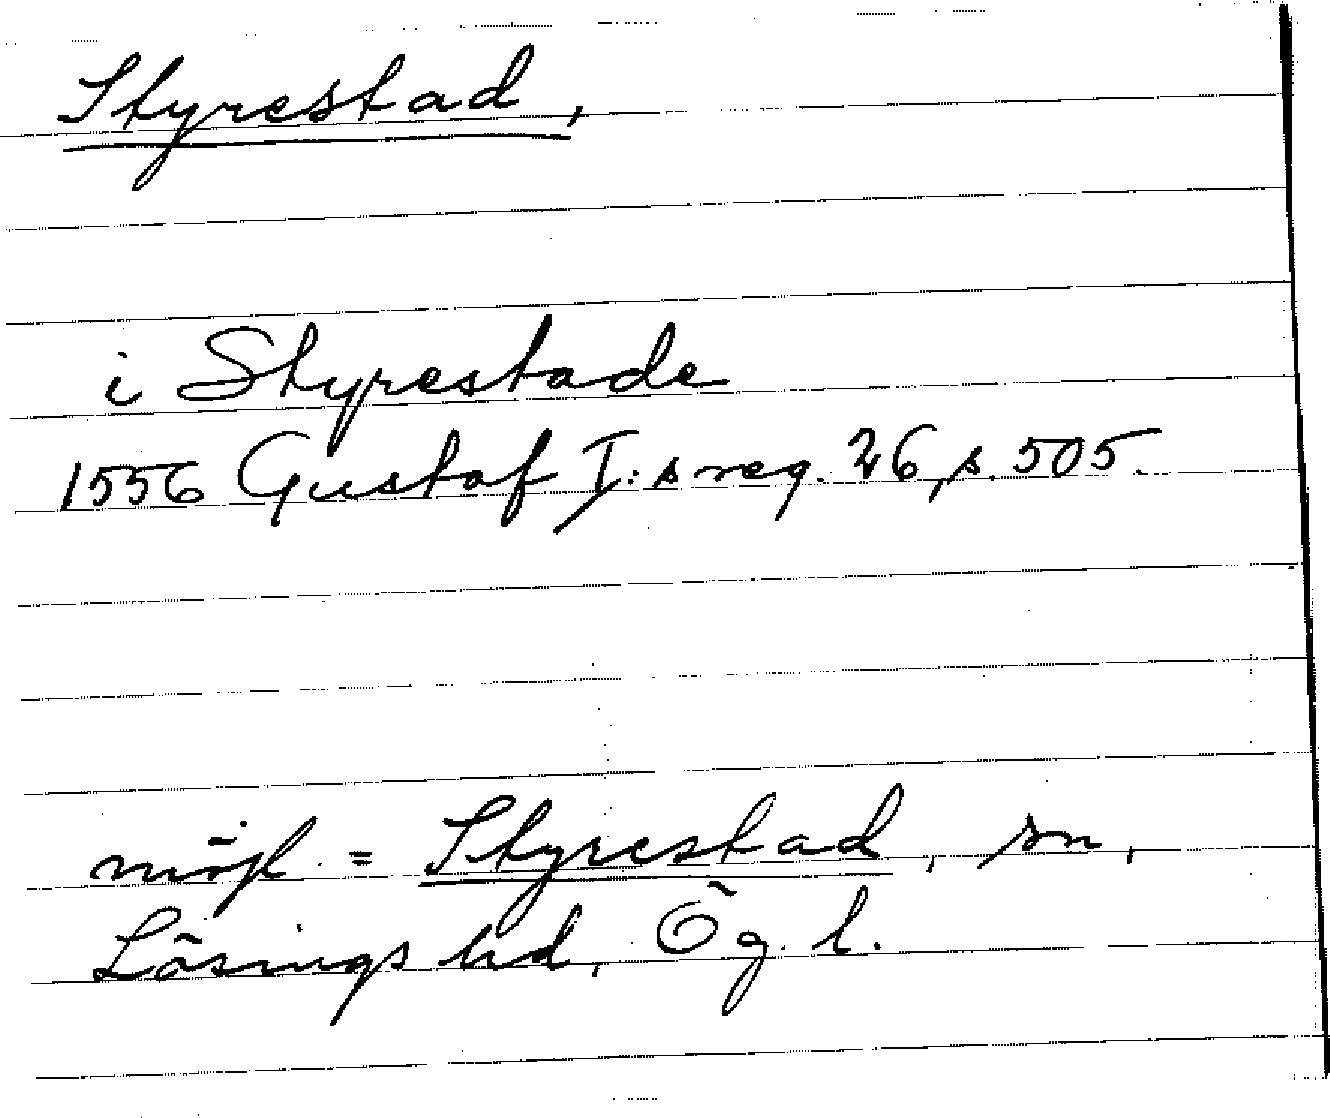 Styrestad,
i Styrestade
1556 Gustaf I:s reg. 26, s. 505.
möjl. = Styrestad, sn,
Lösings hd, Ög. l.